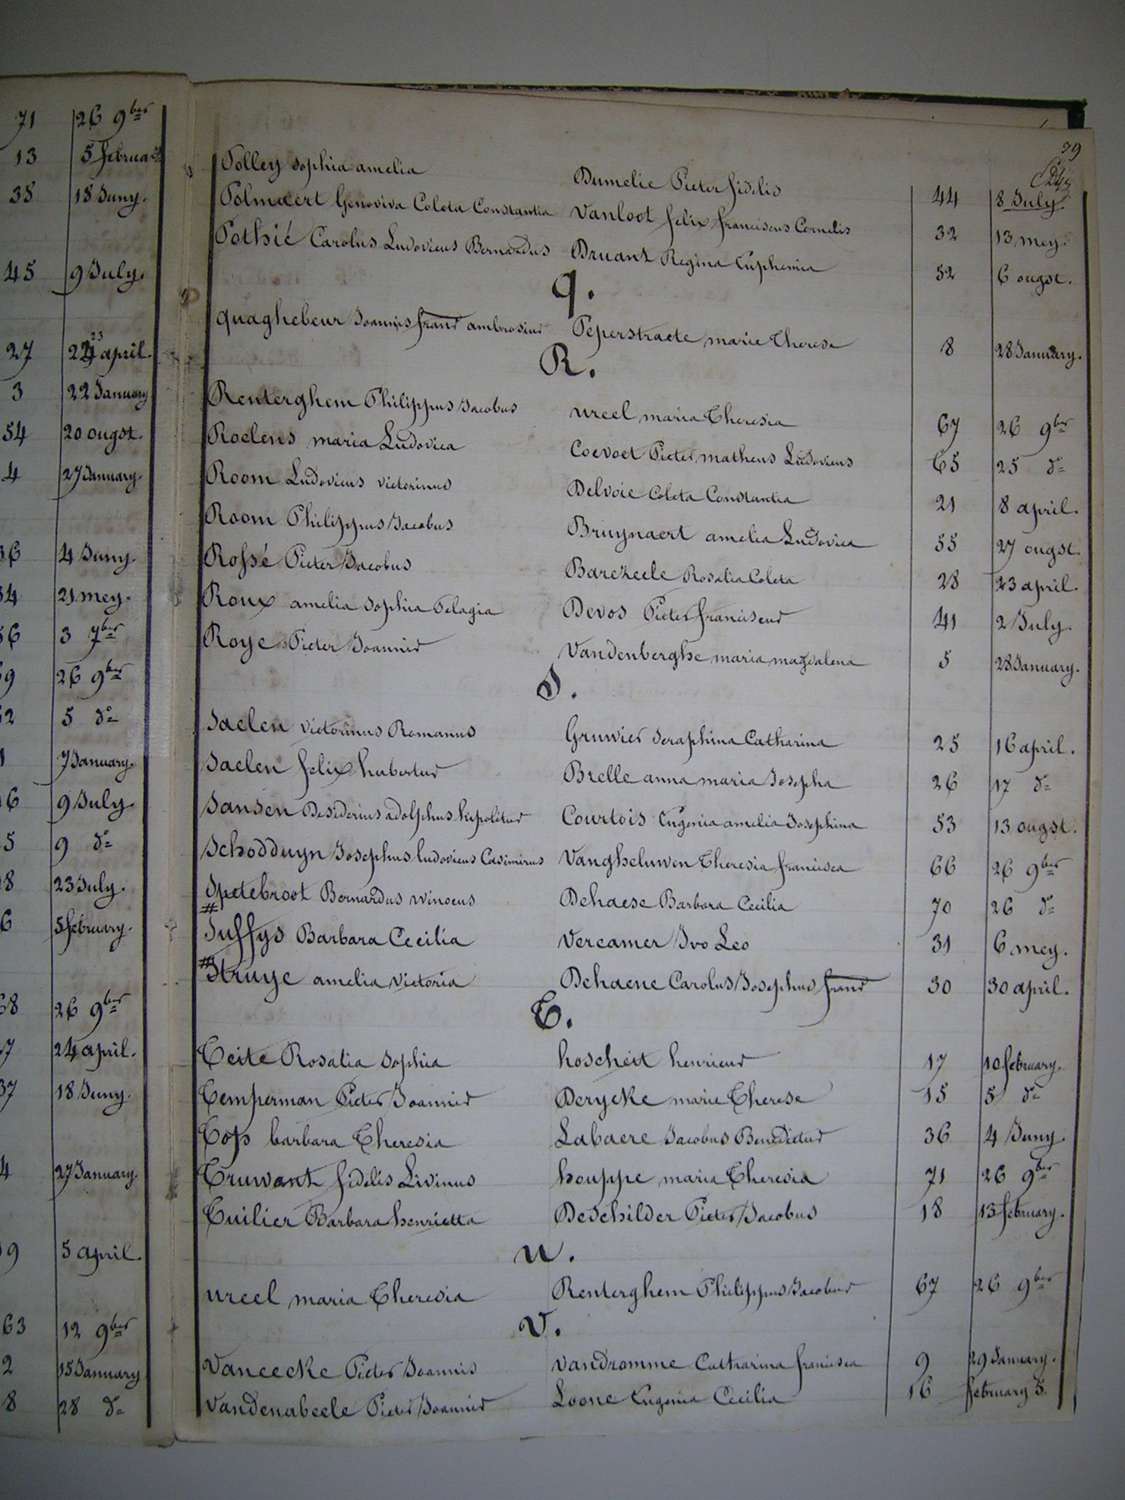 71 26 9ber
13 5 februa
38 18 Juny.
45 9 July.
27 april.
3 22 January
54 20 ougst.
4 27 January.
4 Juny.
21 mey.
3 7ber
26 9ber
5 do
7 January.
9 July.
9 do
23 July.
5 february.
26 9ber
24 april.
18 Juny.
27 January.
5 April.
63 12 9ber
2 15 January
8 28 do
79
Polley Sophia amelia Dumelie Pieter fidelis 44 8 July.
Polmaert Genoviva Coleta Constantia Vanloot felix franciscus Cornelis 32 13 mey.
Pothié Carolus Ludovicus Bernardus Druant Regina Euphemia 52 6 ougst.
q.
quaghebeur Joannis frans ambrosius Peperstraete marie Therese 8 28 January.
R.
Renterghem Philippus Jacobus ureel maria Theresia 67 26 9ber
Roelens maria Ludovica Coevoet Pieter matheus Ludovicus 65 25 do
Room Ludovicus victorinus Delvoie Coleta Constantia 21 8 april.
Room Philippus Jacobus Bruynaert amelia Ludovica 55 27 ougst.
Rossé Pieter Jacobus Barezeele Rosalia Coleta 28 23 april.
Roux amelia Sophia Pelagia Devos Pieter franciscus 41 2 July.
Roye Pieter Joannis Vandenberghe maria magdalena 5 28 January.
S.
Saelen victorinus Romanus Gruwier Seraphina Catharina 25 16 april.
Saelen felix hubertus Brelle anna maria Josepha 26 17 do
Sansen Desiderius adolphus hipolitus Courtois Eugenia amelia Josephina 53 13 ougst.
Schodduyn Josephus ludovicus Casimirus Vangheluwen Theresia francisca 66 26 9ber
Spetebroot Bernardus winocus Dehaese Barbara Cecilia 70 26 do
# Suffys Barbara Cecilia Vercamer Ivo Leo 31 6 mey.
# Struye amelia victoria Dehaene Carolus Josephus frans 30 30 april.
T.
Teite Rosalia Sophia hoschert henricus 17 10 february.
Temperman Pieter Joannis Derycke marie Therese 15 5 do
Tops barbara Theresia Labaere Jacobus Benedictus 36 4 Juny.
Truwant fidelis Livinus houppe maria Theresia 71 26 9ber
Tuilier Barbara henrietta Deschilder Pieter Jacobus 18 13 february.
u.
ureel maria Theresia Renterghem Philippus Jacobus 67 26 9ber
V.
Vaneecke Pieter Joannis Vandromme Catharina francisca 9 29 January.
Vandenabeele Pieter Joannis Loone Eugenia Cecilia 16 february 5.